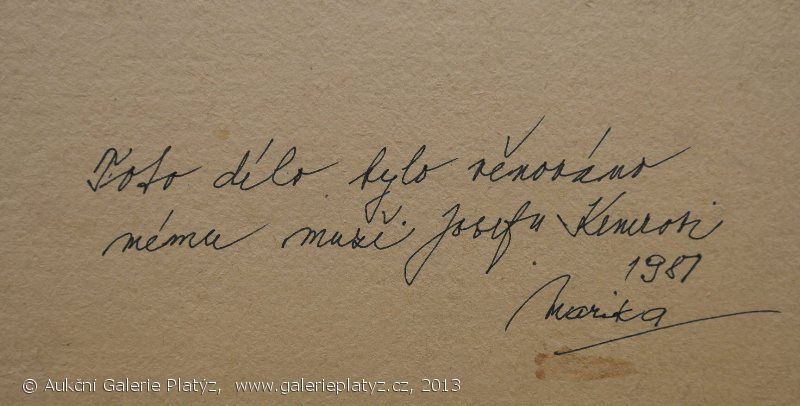 Toto dílo bylo věnováno
mému muži Josefu Kemrovi
1981
Marika
© Aukční Galerie Platýz, www.galerieplatyz.cz, 2013